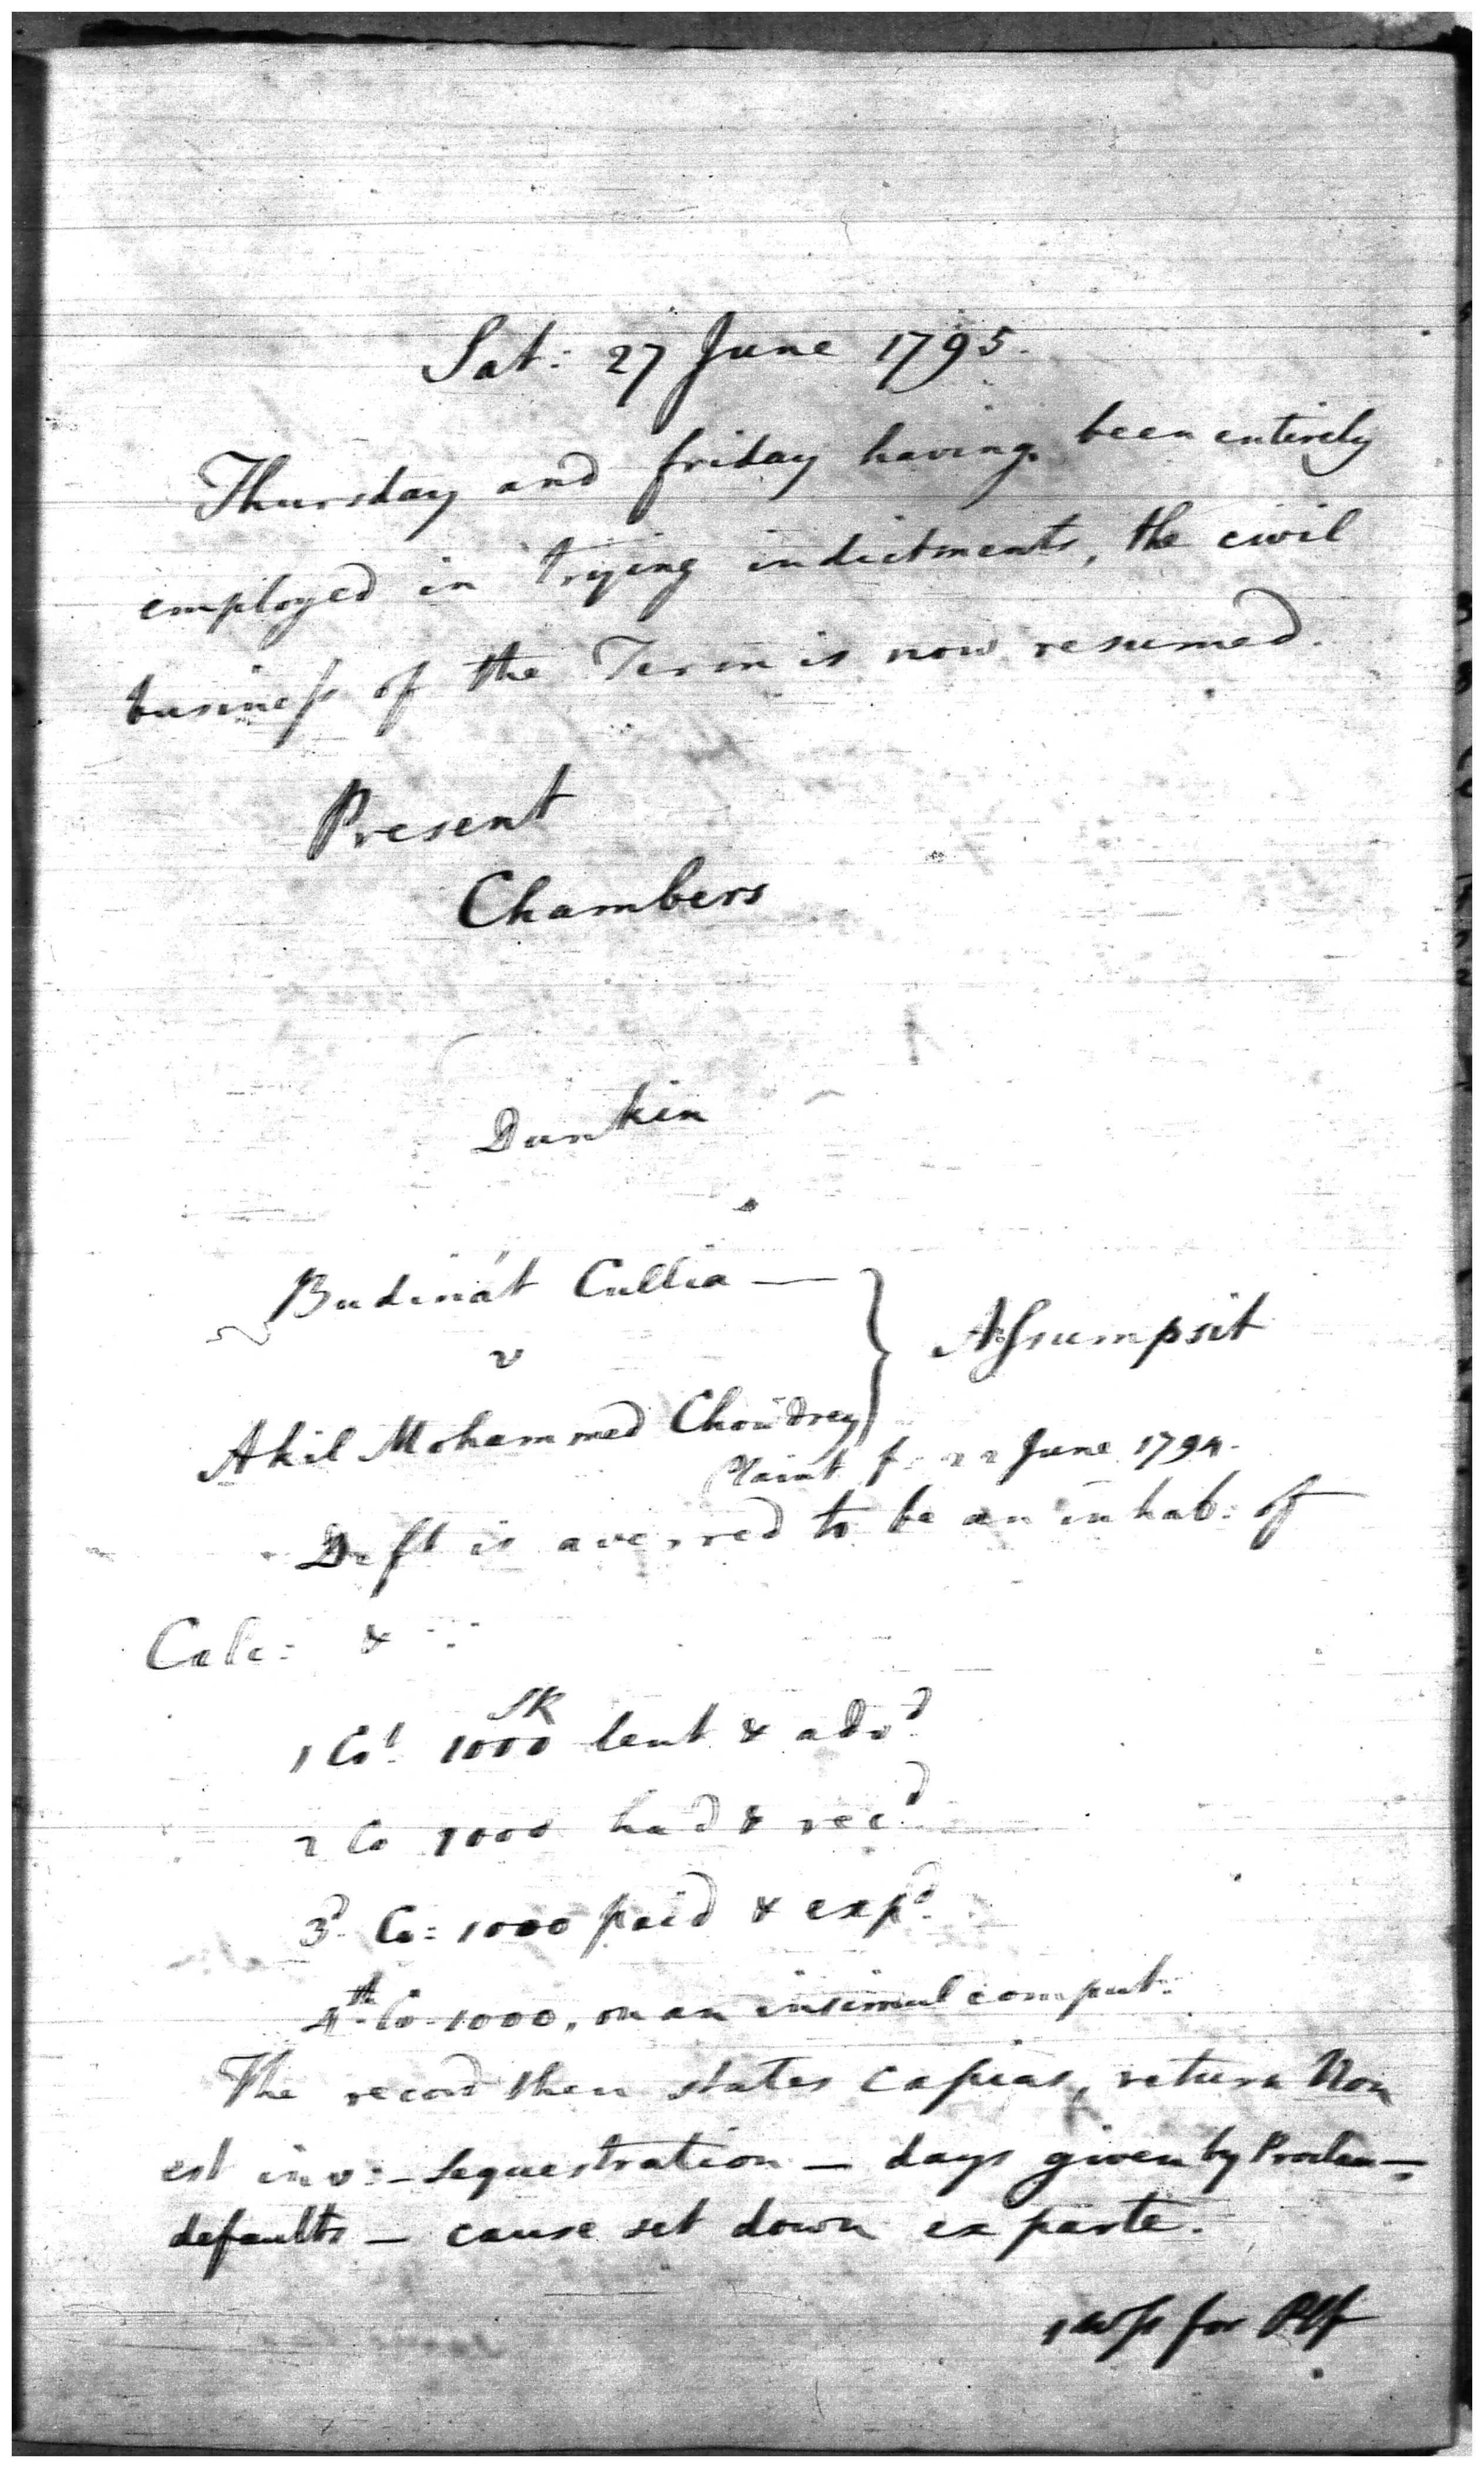 Sat: 27 June 1795.
Thursday and friday having been entirely
employed in trying indictments, the civil
business of the Term is now resumed.
Present
Chambers
Dunkin
Budinát Cullia —
v
Assumpsit
Akil Mohammed Choudrey
Plaint f. 22 June 1794.
Deft is averred to be an inhab: of
Calc: &
SR
1 Ct. 1000 lent & advd.
2 Co 1000 had & recd.
3d. Co: 1000 paid & expd.
4th. Co - 1000, on an insimul comput:
The record then states Capias, return Non
est inv: - Sequestration — days given by Proclan —
defaults — cause set down ex parte.
1 Wss for Plf